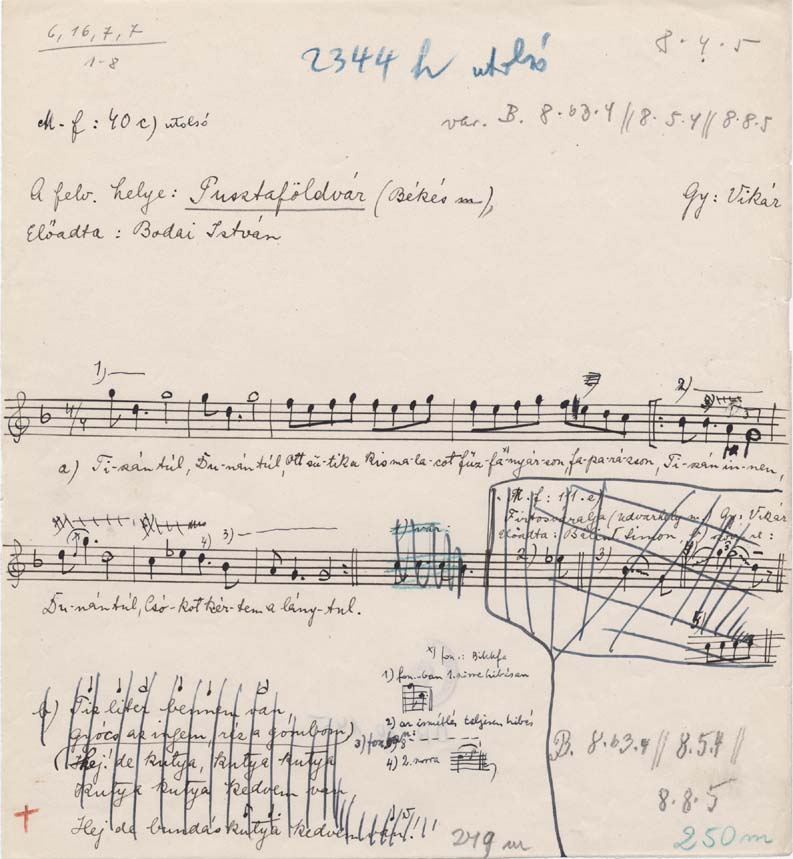 6, 16, 7, 7
1-8
2344 h utolsó
8. 4. 5
M-f: 40 c) utolsó
var. B. 8. b3. 4 // 8. 5. 4 // 8. 8. 5
A felv. helye: Pusztaföldvár (Békés m),
Gy: Vikár
Előadta: Bodai István
1)
2)
4/4
a) Ti-szán túl, Du-nán túl, Ott sü-tik a kis ma-la-cot fűz-fa nyár-son, fa pa-rá-zson, Ti-szán in-nen,
M. f: 111. e)
Gy: Vikár
Előadta: Bálint Simon
4) var:
2)
3)
3)
4)
5)
Du-nán túl, Csó-kot kér-tem a lány-tul.
x) fon.: Bikkfa
1) fon.-ban 1. sorra hibásan
2) az ismétlés teljesen hibás
3) fon.
4) 2. sorra
b) Tíz liter bennem van,
Gyócs az ingem, réz a gombom
(Hej! de kutya, kutya kutya
Kutya kutya kedvem van,
Hej de bundás kutya kedvem van!!
B. 8. b3. 4 // 8. 5. 4 //
8. 8. 5
249 m
250 m